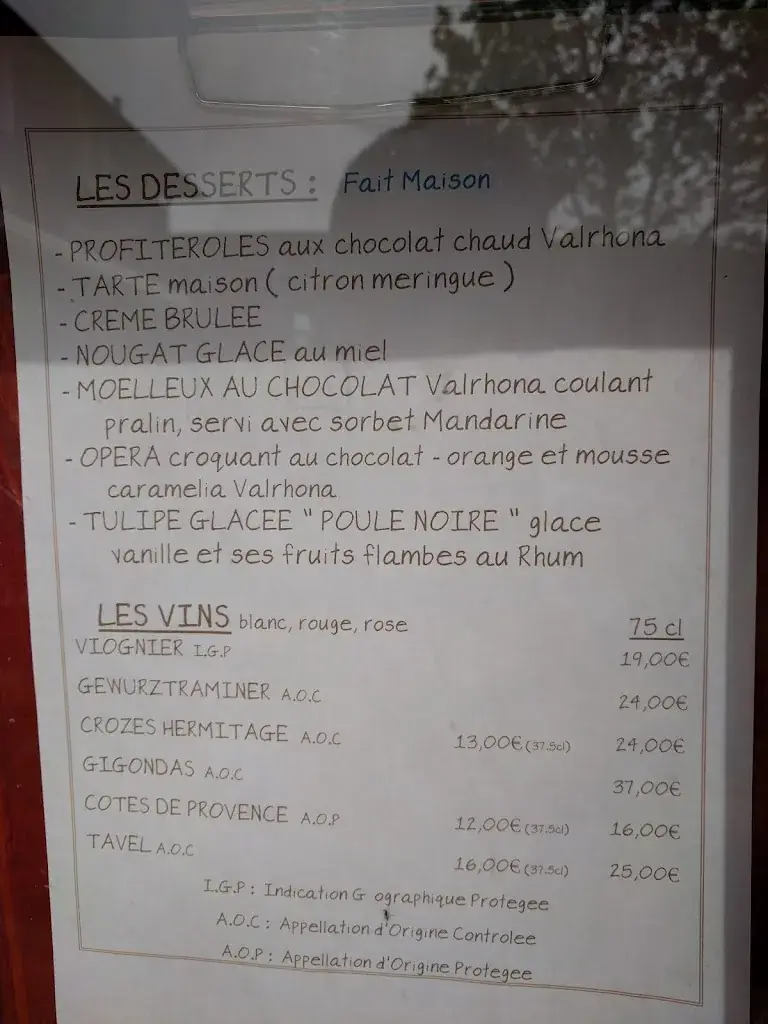 LES DESSERTS : Fait Maison
- PROFITEROLES aux chocolat chaud Valrhona
- TARTE maison ( citron meringue )
- CREME BRULEE
- NOUGAT GLACE au miel
- MOELLEUX AU CHOCOLAT Valrhona coulant
pralin, servi avec sorbet Mandarine
- OPERA croquant au chocolat - orange et mousse
caramelia Valrhona
- TULIPE GLACEE " POULE NOIRE " glace
vanille et ses fruits flambes au Rhum
LES VINS blanc, rouge, rose 75 cl
VIOGNIER I.G.P 19,00€
GEWURZTRAMINER A.O.C 24,00€
CROZES HERMITAGE A.O.C 13,00€ (37.5cl) 24,00€
GIGONDAS A.O.C 37,00€
COTES DE PROVENCE A.O.P 12,00€ (37.5cl) 16,00€
TAVEL A.O.C 16,00€ (37.5cl) 25,00€
I.G.P : Indication G ographique Protegee
A.O.C : Appellation d'Origine Controlee
A.O.P : Appellation d'Origine Protegee